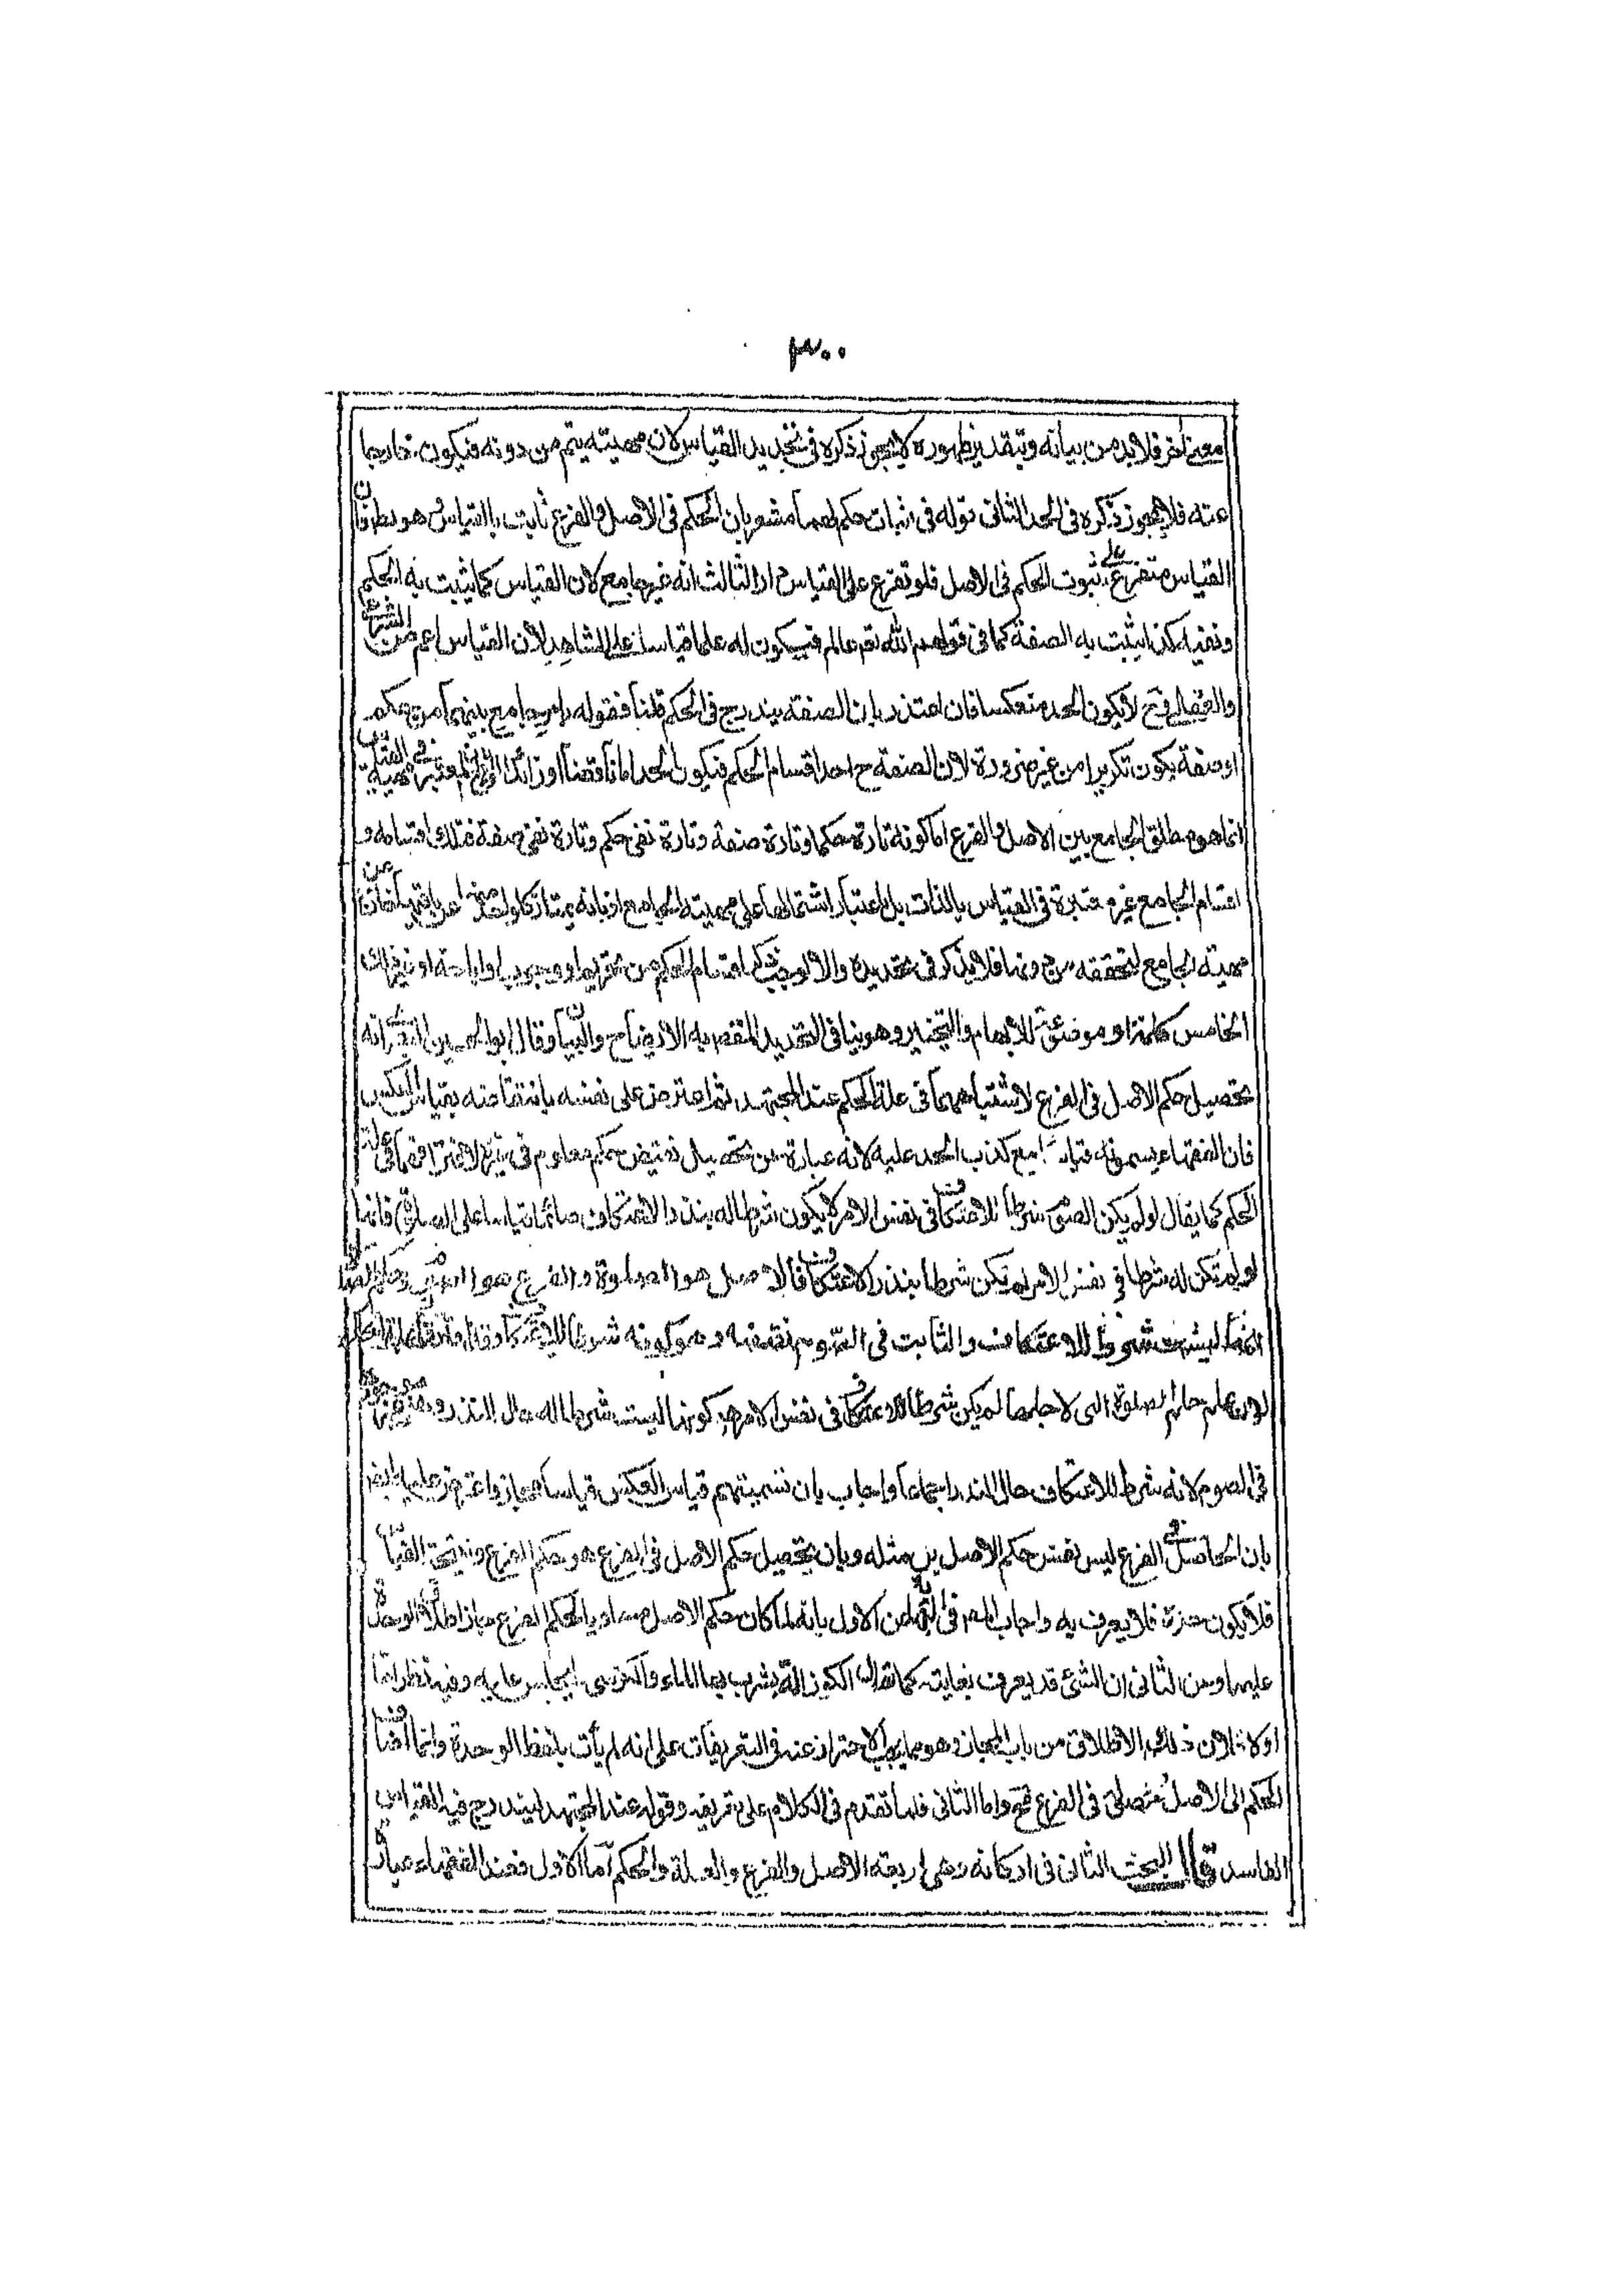 ٣٠٠
معنى آخر فلابد من بيانه وبتقدير ظهوره لا يجوز ذكره في تحديد القياس لان مهيته يتم من دونه فيكون خارجا
عنه فلا يجوز ذكره في الحد الثانى قوله في اثبات حكم لهما مشعر بان الحكم في الاصل والفرع ثابت بالقياس وهو بط فان
القياس متفرع على ثبوت الحكم في الاصل فلو تفرع على القياس دار الثالث انه غير جامع لان القياس كما يثبت به الحكم
ونفيه كذا يثبت به الصفة كما في قولهم الله تع عالم فيكون له علما قياسا على الشاهد لان القياس اعم من الشرعى
والعقلى وح لا يكون الحد منعكسا فان اعتذر بان الصفة يندرج في الحكم قلنا فقوله بامر جامع بينهما من حكم
او صفة يكون تكريرا من غير ضرورة لان الصفة ح احد اقسام الحكم فيكون الحد اما ناقصا او زائدا الرابع المعتبر في مهية القياس
انما هو مطلق الجامع بين الاصل والفرع اما كونه تارة حكما وتارة صفة وتارة نفى حكم وتارة نفى صفة فتلك اقسامه و
اقسام الجامع غير معتبرة في القياس بالذات بل باعتبار اشتمالها على مهية الجامع اذ بانه يمتاز كل واحد منها عن باقيها خارج عن
مهية الجامع لتحققه من دونها فلا يذكر في تحديده والا لوجب ذكر اقسام الحكم من تحريم او وجوب او اباحة او غير ذلك
الخامس كلمة او موضوعة للابهام والتخيير وهو ينافى التحديد المقصود به الايضاح والبيان وقال ابو الحسين البصرى انه
تحصيل حكم الاصل في الفرع لاشتباههما في علة الحكم عند المجتهد ثم اعترض على نفسه بانتقاضه بقياس العكس
فان الفقهاء يسمونه قياسا مع كذب الحد عليه لانه عبارة من تحصيل نقيض حكم معلوم في غيره لافتراقهما في علة
الحكم كما يقال لو لم يكن الصوم شرطا للاعتكاف في نفس الامر لا يكون شرطا له بنذر الاعتكاف صائما قياسا على الصلوة فانها
لو لم تكن له شرطا في نفس الامر لم تكن شرطا بنذر الاعتكاف فالاصل هو الصلوة والفرع هو الصوم وحكم الصلوة
انها ليست شرطا للاعتكاف والثابت في الصوم نقيضه وهو كونه شرطا للاعتكاف
الصلوة التى لاجلها لم يكن شرطا للاعتكاف في نفس الامر هو كونها ليست شرطا له حال النذر
في الصوم لانه شرط للاعتكاف حال النذر اجماعا واجاب بان تسميتهم قياس العكس قياسا مجاز واعترض عليه ايضا
بان الحاصل في الفرع ليس نفس حكم الاصل بل مثله وبان تحصيل حكم الاصل في الفرع هو حكم الفرع ونتيجة القياس
فلا يكون جزءه فلا يعرف به واجاب المص في النهاية عن الاول بانه لما كان حكم الاصل مساويا لحكم الفرع جاز اطلاق الوحدة
عليهما وعن الثانى ان الشئ قد يعرف بغايته كما يقال الكوز آلة يشرب بها الماء والكرسى ليجلس عليه وفيه نظر اما
اولا فلان ذلك الاطلاق من باب المجاز وهو مما يجب الاحتراز عنه في التعريفات على انه لم يأت بلفظ الوحدة وانما اضاف
الحكم الى الاصل في الفرع واما الثانى فلما تقدم في الكلام على تعريفه وقوله عند المجتهد ليندرج فيه القياس
الفاسد قال البحث الثانى في اركانه وهى اربعة الاصل والفرع والعلة والحكم اما الاول فعند الفقهاء عبارة